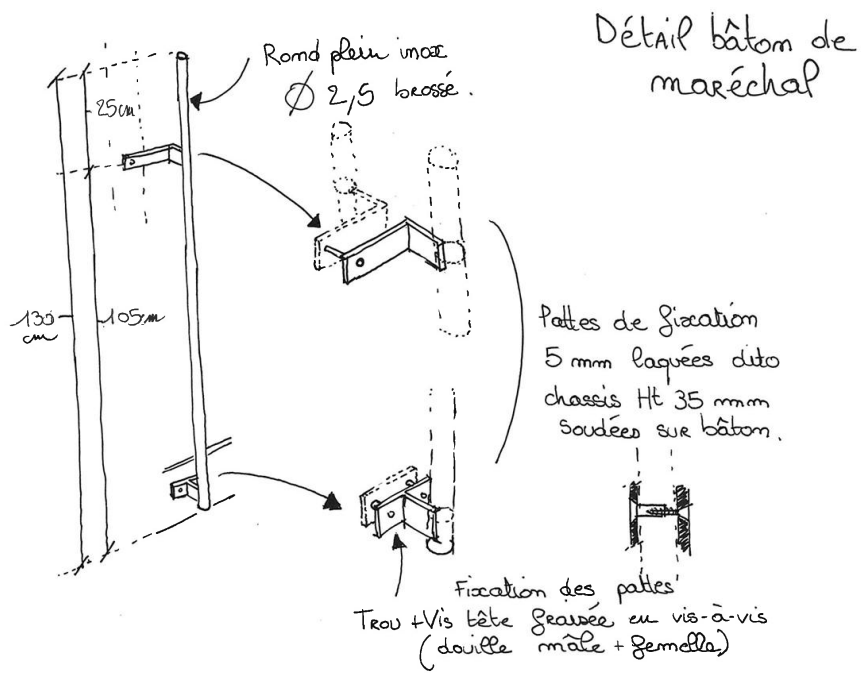 Détail bâton de
maréchal
Rond plein inox
Ø 2,5 brossé.
25cm
130
cm
105cm
Pattes de fixation
5 mm laquées dito
chassis Ht 35 mm
soudées sur bâton.
Fixation des pattes
Trou + Vis tête fraisée en vis-à-vis
(douille mâle + femelle)